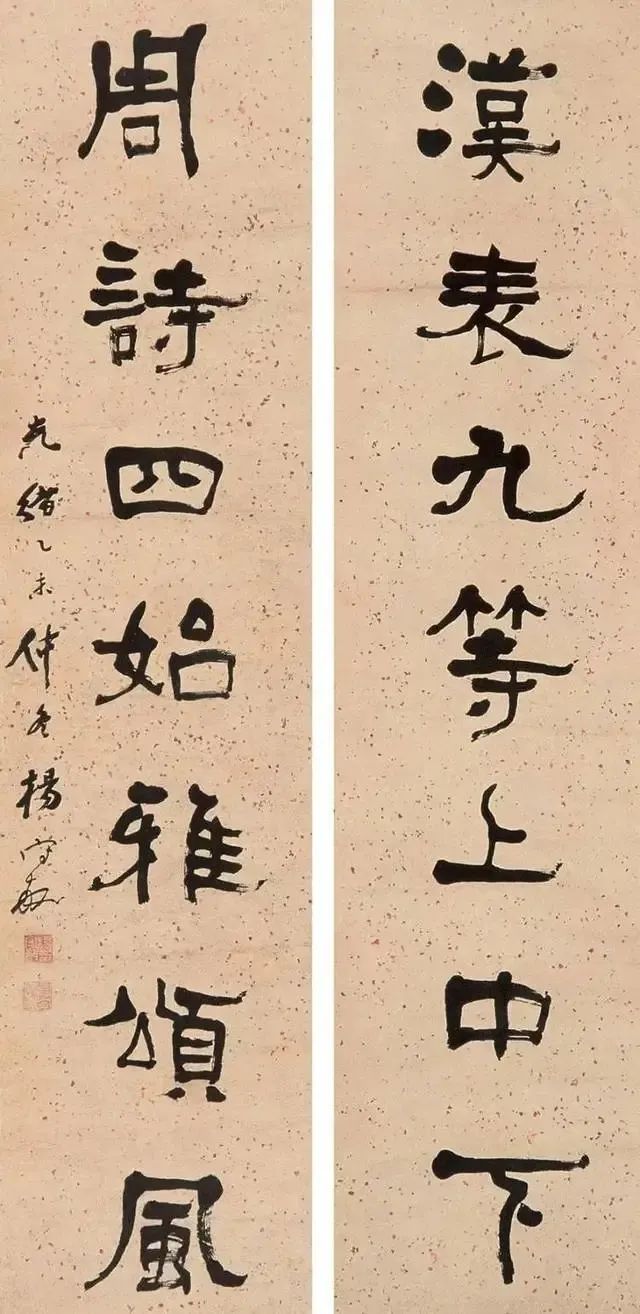 漢表九等上中下
周詩四始雅頌風
光緒乙未仲冬楊守敬